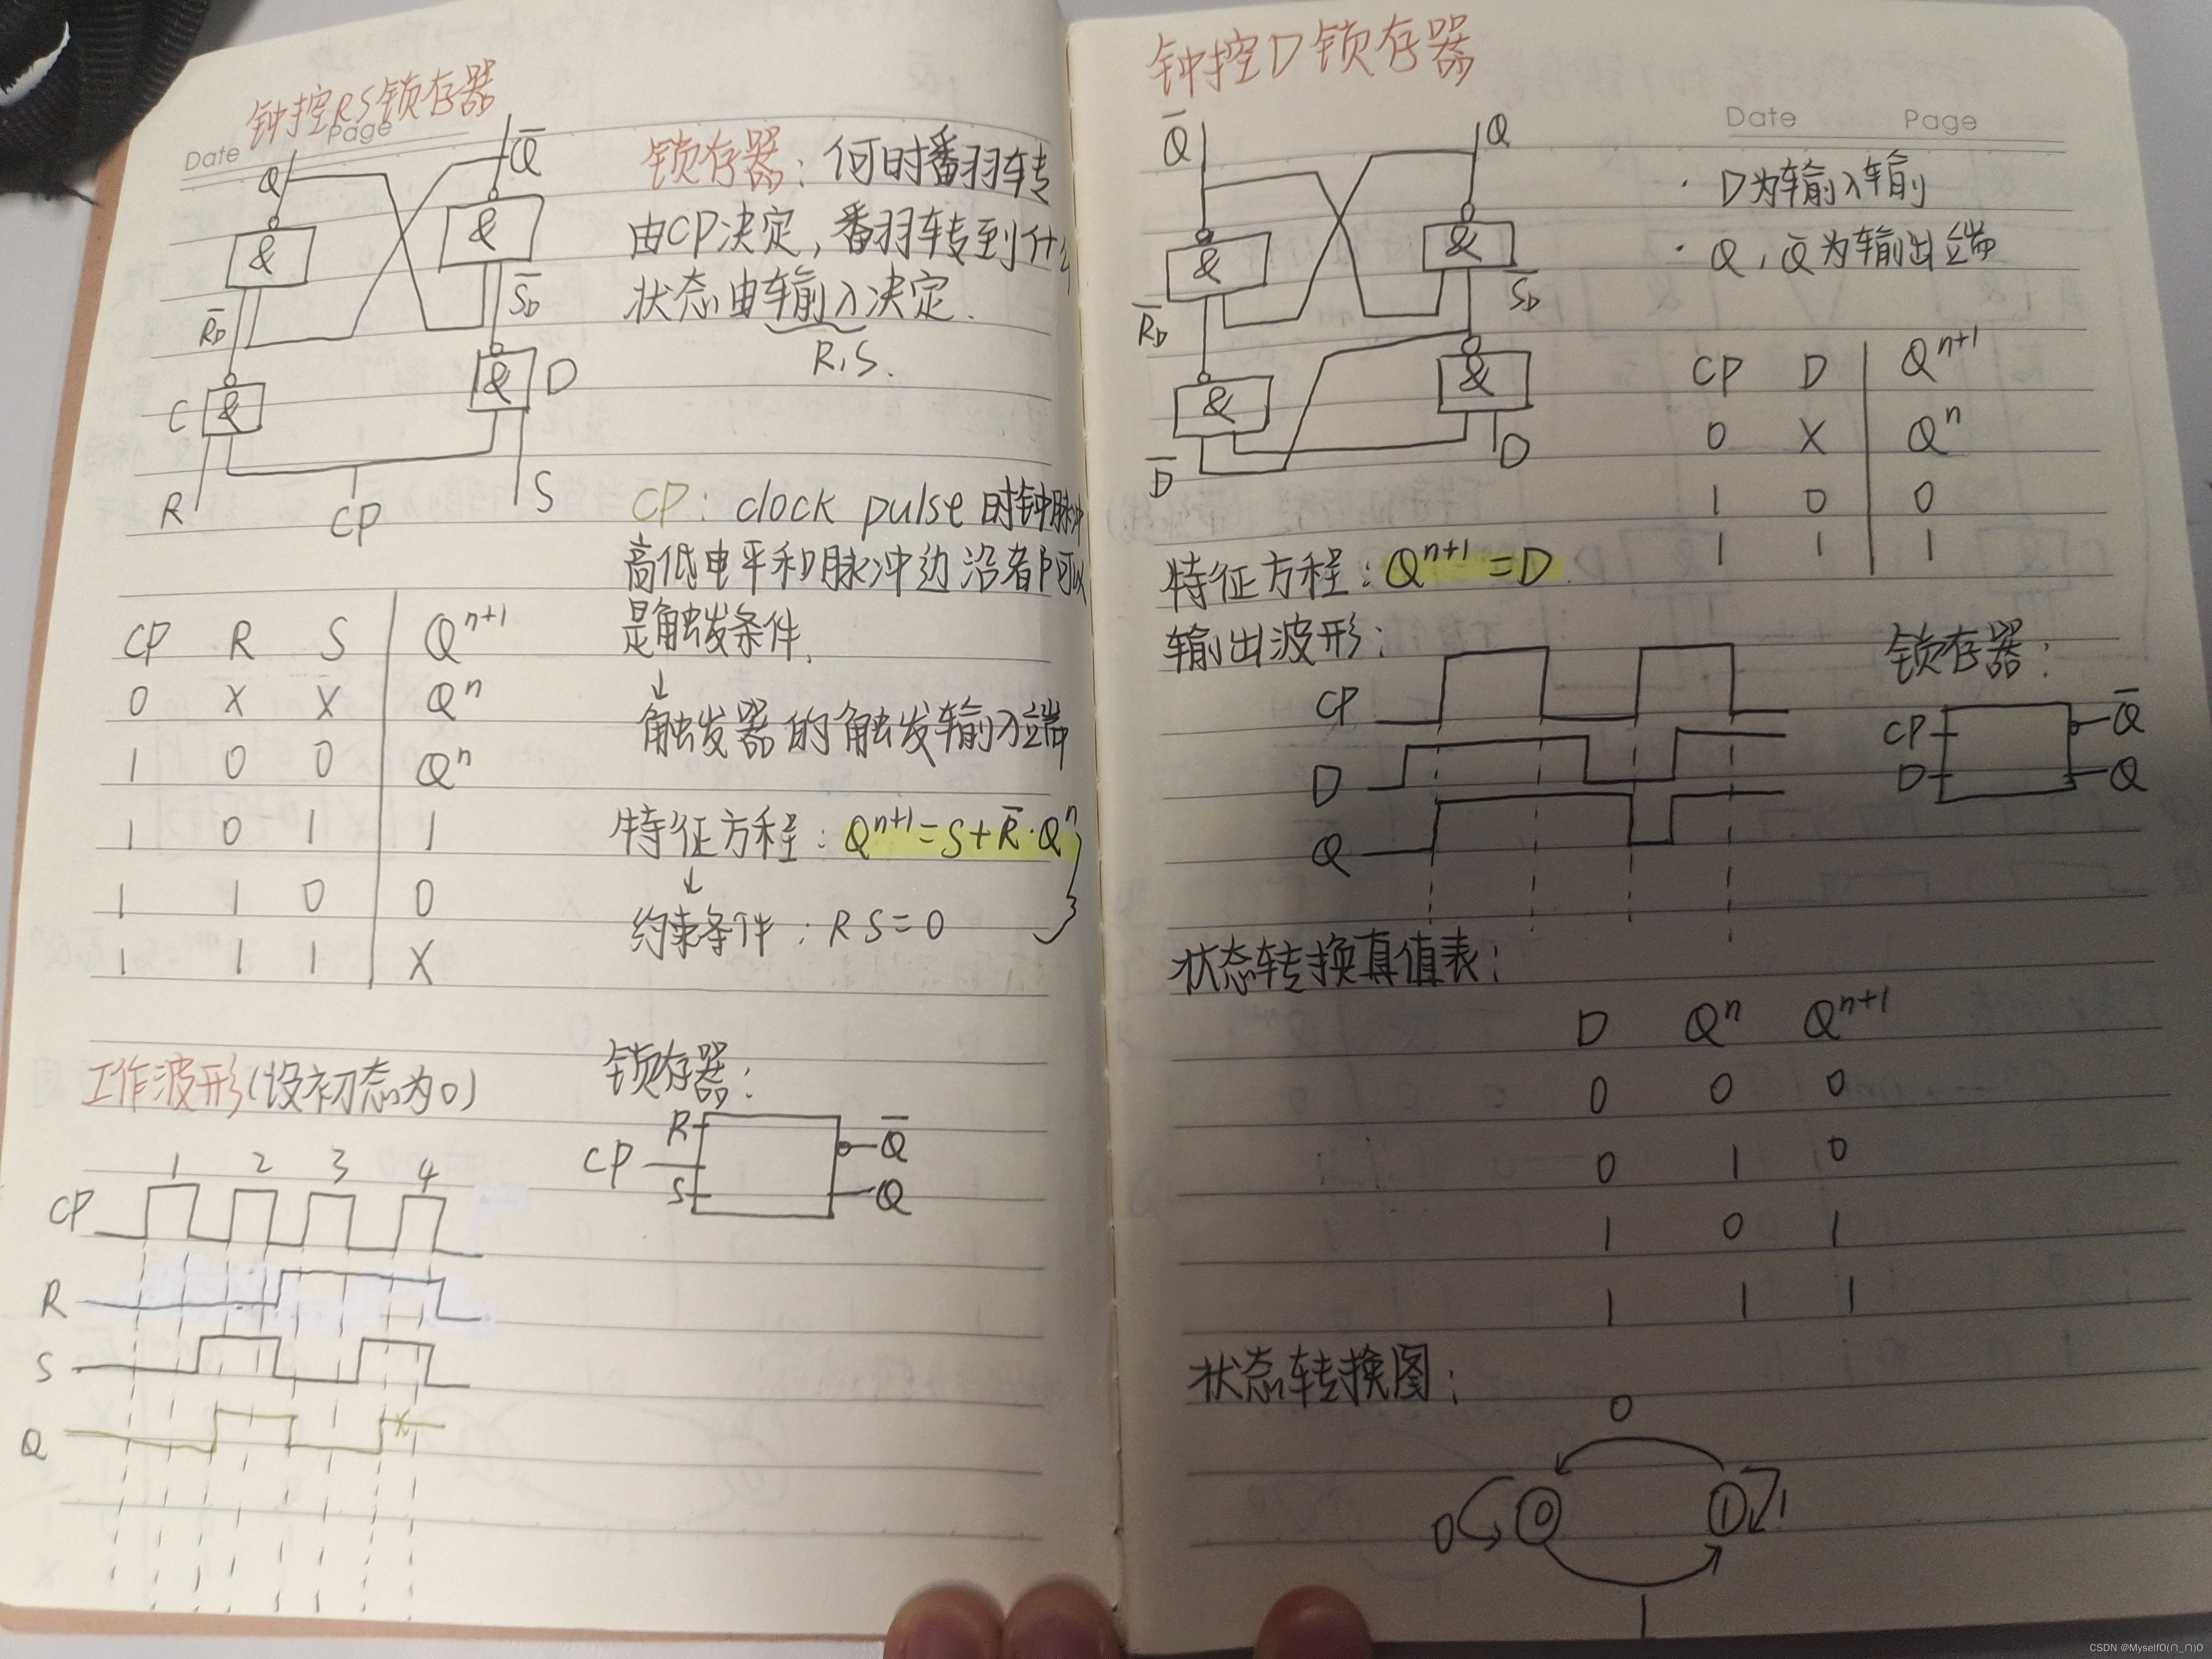 钟控RS锁存器
Date Page
Q
Q̅
&
&
R̅D
S̅D
C
&
&
D
R
CP
S
锁存器：何时翻转
由CP决定，翻转到什么
状态由输入决定．
R,S.
CP：clock pulse 时钟脉冲
高低电平和脉冲边沿都可以
是触发条件．
↓
触发器的触发输入端
CP R S Q^{n+1}
0 X X Q^n
1 0 0 Q^n
1 0 1 1
1 1 0 0
1 1 1 X
特征方程：Q^{n+1}=S+R̅·Q^n
↓
约束条件：RS=0
工作波形(设初态为0)
1 2 3 4
CP
R
S
Q
锁存器：
R
CP
S
Q̅
Q
钟控D锁存器
Date Page
Q̅
Q
&
&
R̅D
S̅D
&
&
D̅
D
· D为输入输前
· Q，Q̅为输出端
CP D Q^{n+1}
0 X Q^n
1 0 0
1 1 1
特征方程：Q^{n+1}=D.
输出波形：
CP
D
Q
锁存器：
CP
D
Q̅
Q
状态转换真值表：
D Q^n Q^{n+1}
0 0 0
0 1 0
1 0 1
1 1 1
状态转换图：
0
0
0
1
1
1
CSDN @MyselfO(∩_∩)O